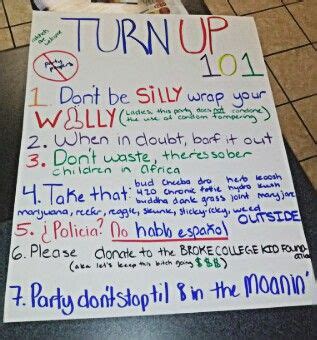 TURN UP
101
Party Poopers
1. Don't be SILLY wrap your
WILLY (Ladies, this party does not condone
the use of condom tampering)
2. When in doubt, barf it out
3. Don't waste, theres sober
children in Africa
4. Take that: bud cheeba dro herb koosh
420 chrome totie hydro kush
buddha dank grass joint mary jane
marijuana, reefer, reggie, skunk, sticky icky, weed
OUTSIDE
5. ¿Policia? No hablo español
6. Please donate to the BROKE COLLEGE KID FOUND
(aka let's keep this bitch going $$$)
7. Party don't stop til 8 in the moanin'